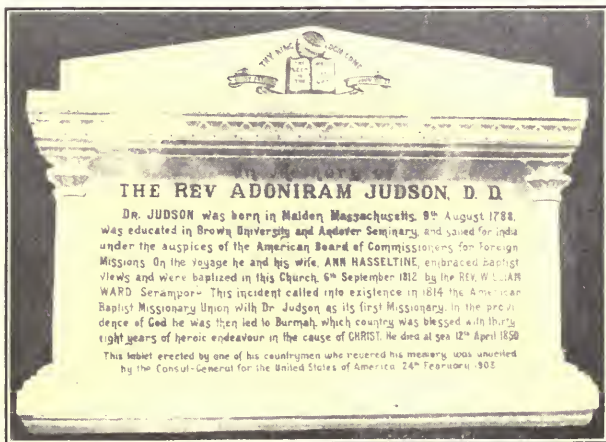 THY KING DOM COME
In Memory of
THE REV ADONIRAM JUDSON, D. D.
DR. JUDSON was born in Malden Massachusetts, 9th August 1788,
was educated in Brown University and Andover Seminary, and sailed for India
under the auspices of the American Board of Commissioners for Foreign
Missions On the voyage he and his wife, ANN HASSELTINE, embraced Baptist
views and were baptized in this Church, 6th September 1812 by the REV. WILLIAM
WARD Serampore This incident called into existence in 1814 the American
Baptist Missionary Union with Dr Judson as its first Missionary. In the provi
dence of God he was then led to Burmah, which country was blessed with thirty
eight years of heroic endeavour in the cause of CHRIST. He died at sea 12th April 1850
This tablet erected by one of his countrymen who revered his memory, was unveiled
by the Consul-General for the United States of America 24th February 1908